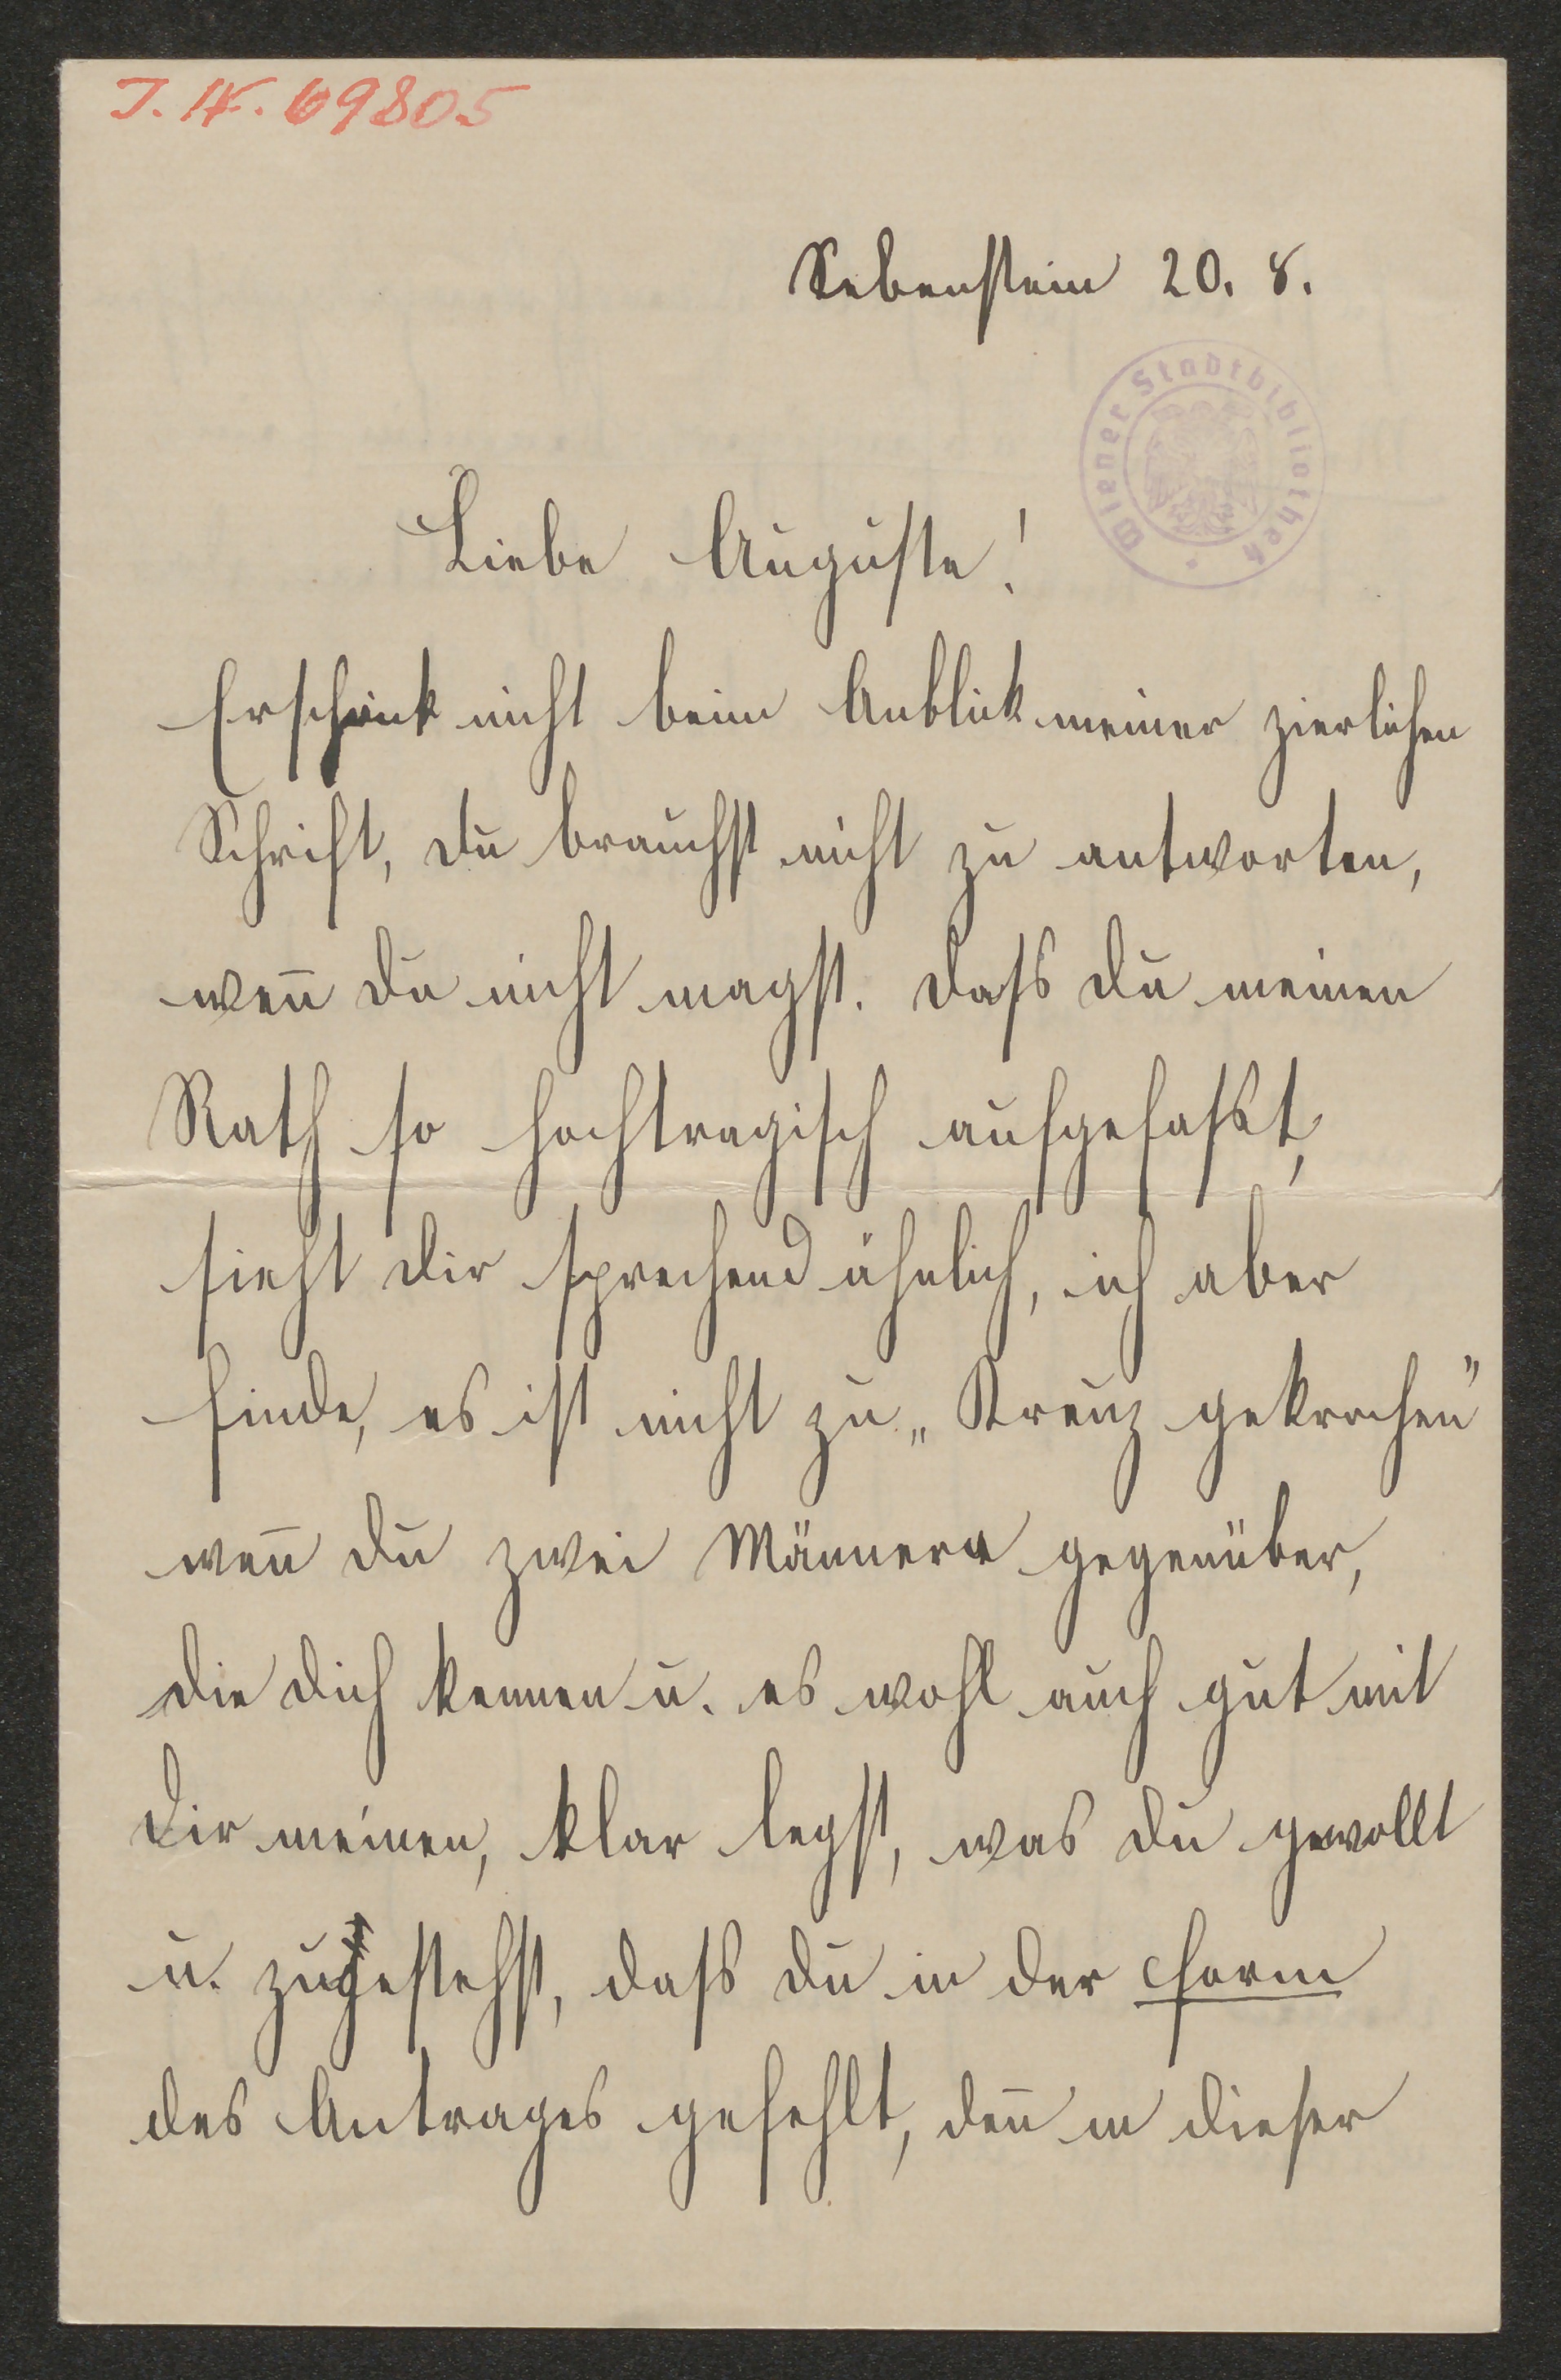 I.N. 69805
Sebenstein 20. 8.
Wiener Stadtbibliothek
Liebe Auguste!
Erschrick nicht beim Anblick meiner zierlichen
Schrift, du brauchst nicht zu antworten,
weñ du nicht magst. Dass du meinen
Rath so hochtragisch aufgefasst,
sieht dir sprechend ähnlich, ich aber
finde, es ist nicht zu „Kreuz gekrochen"
weñ du zwei Männern gegenüber,
die dich kennen u. es wohl auch gut mit
dir meinen, klar legst, was du gewollt
u. zugestehst, dass du in der Form
des Antrages gefehlt, deñ in dieser